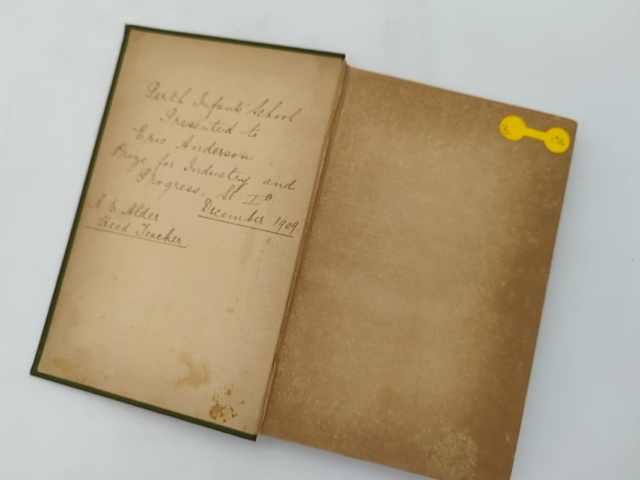 Perth Infants' School
Presented to
Eric Anderson
Prize for Industry and
Progress. St. I B.
December 1909
E Alder
Head Teacher